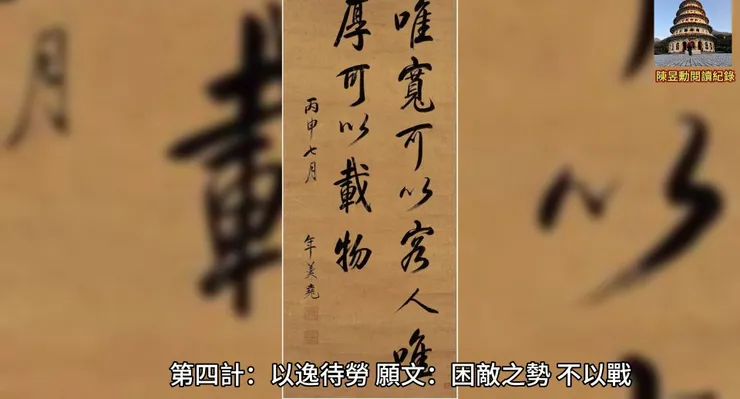 唯寬可以容人唯
厚可以載物
丙申七月
年羹堯
陳昱勳閱讀紀錄
第四計：以逸待勞 願文：困敵之勢 不以戰